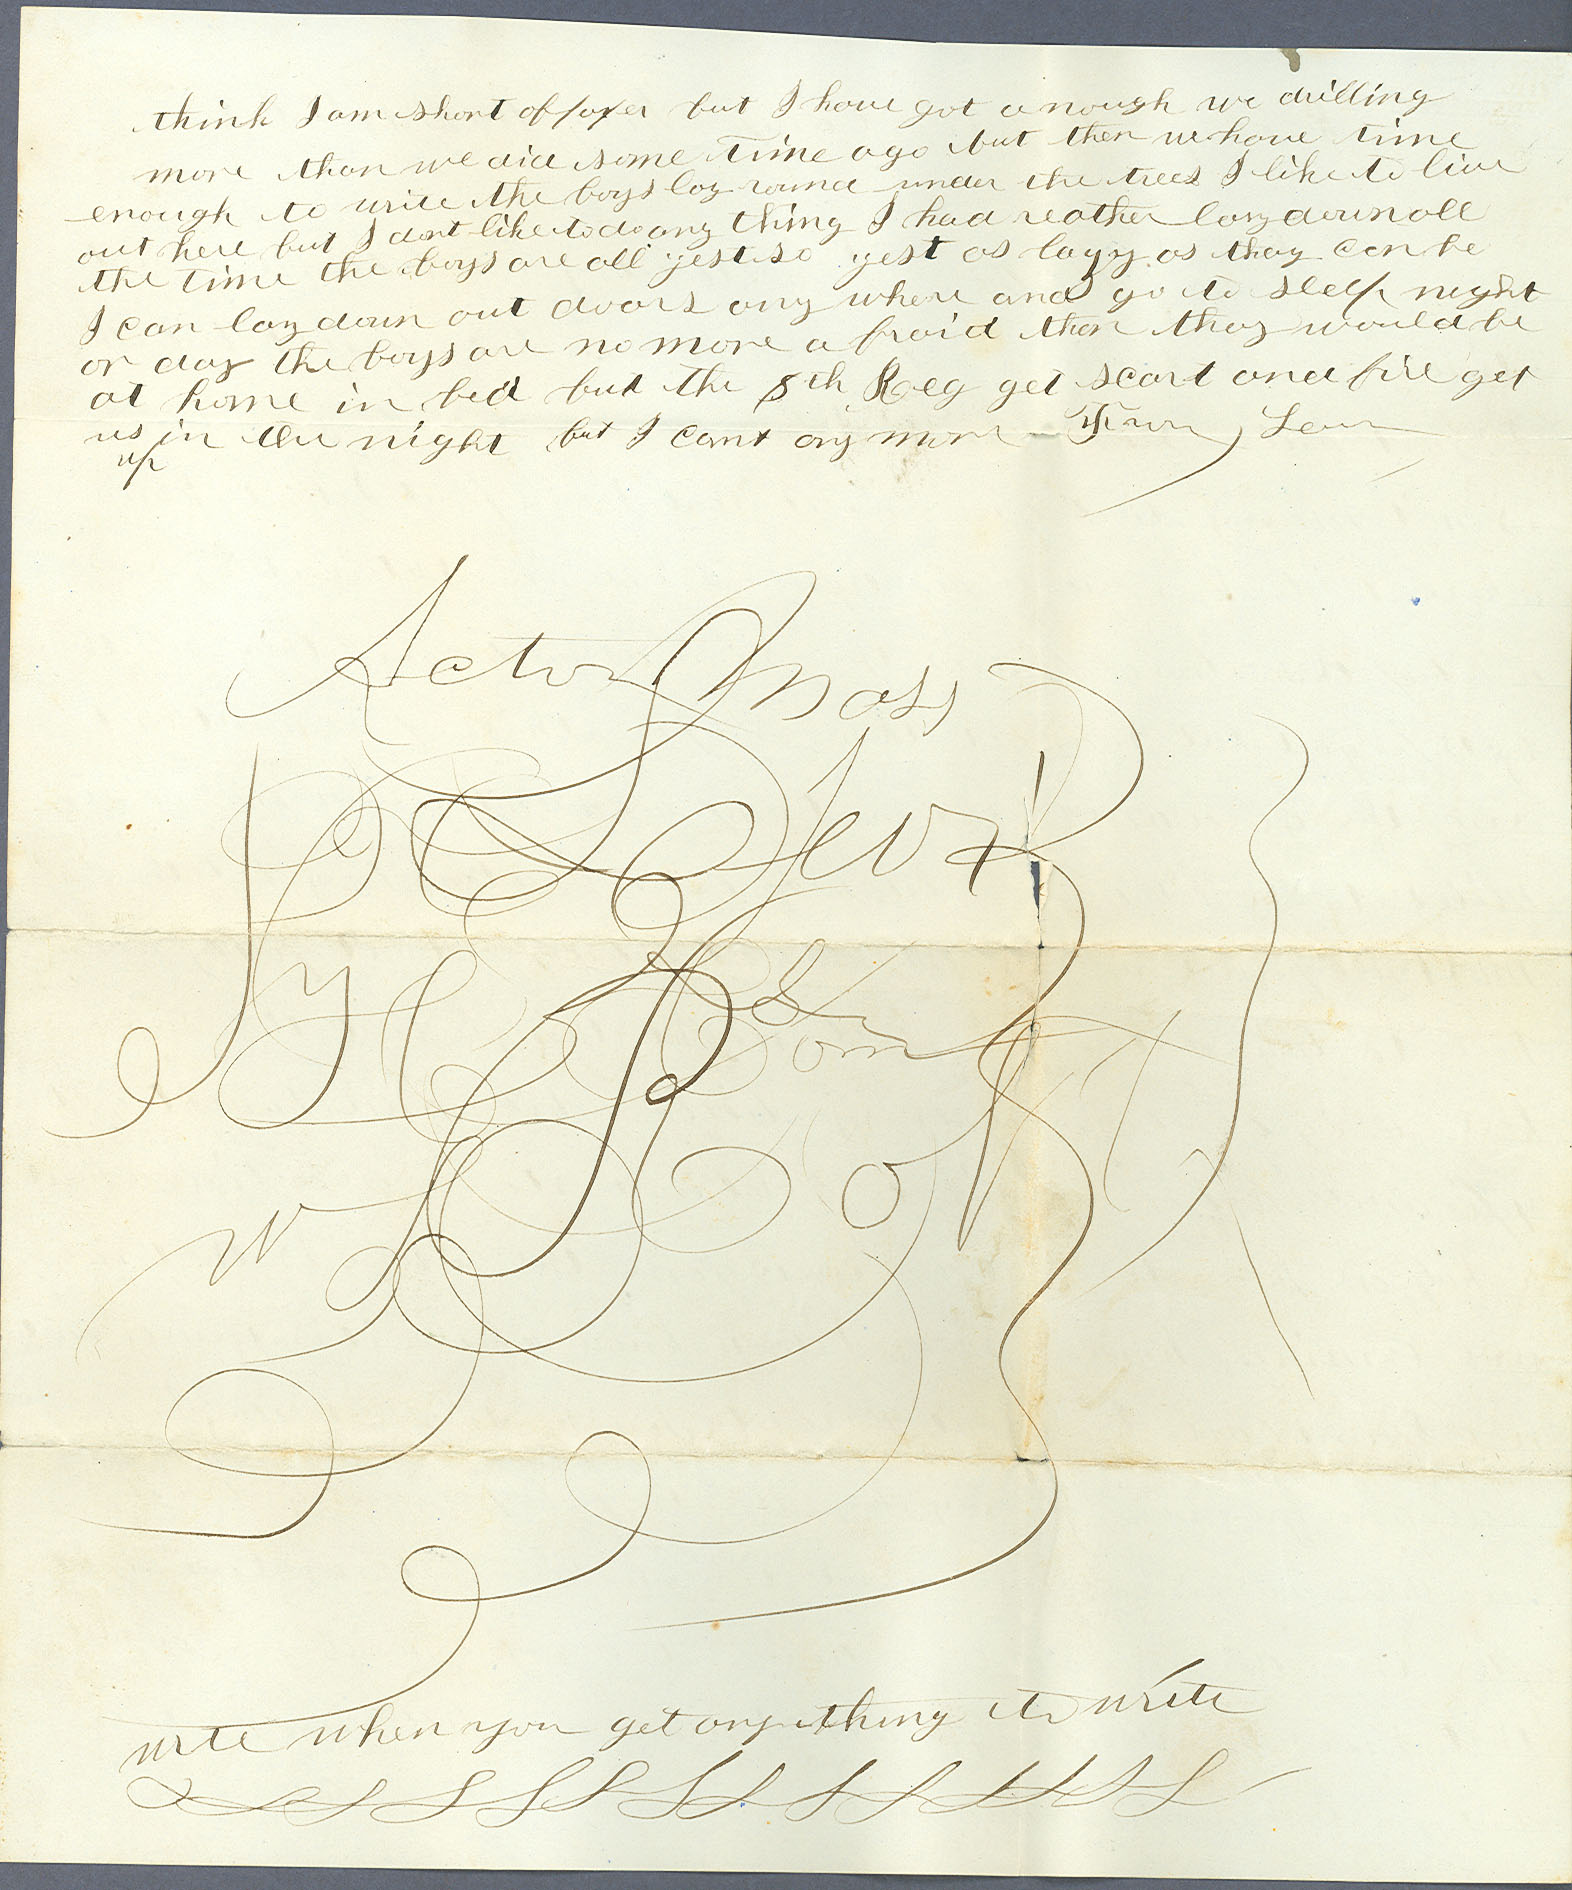 think I am short of paper but I have got a nough we drilling
more than we did some time ago but then we have time
enough to write the boys lay round under the trees I like to live
out here but I dont like to do any thing I had reather lay down all
the time the boys are all jest so jest as lazy as thay can be
I can lay down out doors any where and go to sleep night
or day the boys are no more a fraid than thay would be
at home in bed but the 8th Reg get scart and fire get
us in the night but I cant any more
up
Acton Mass
write when you get any thing to write